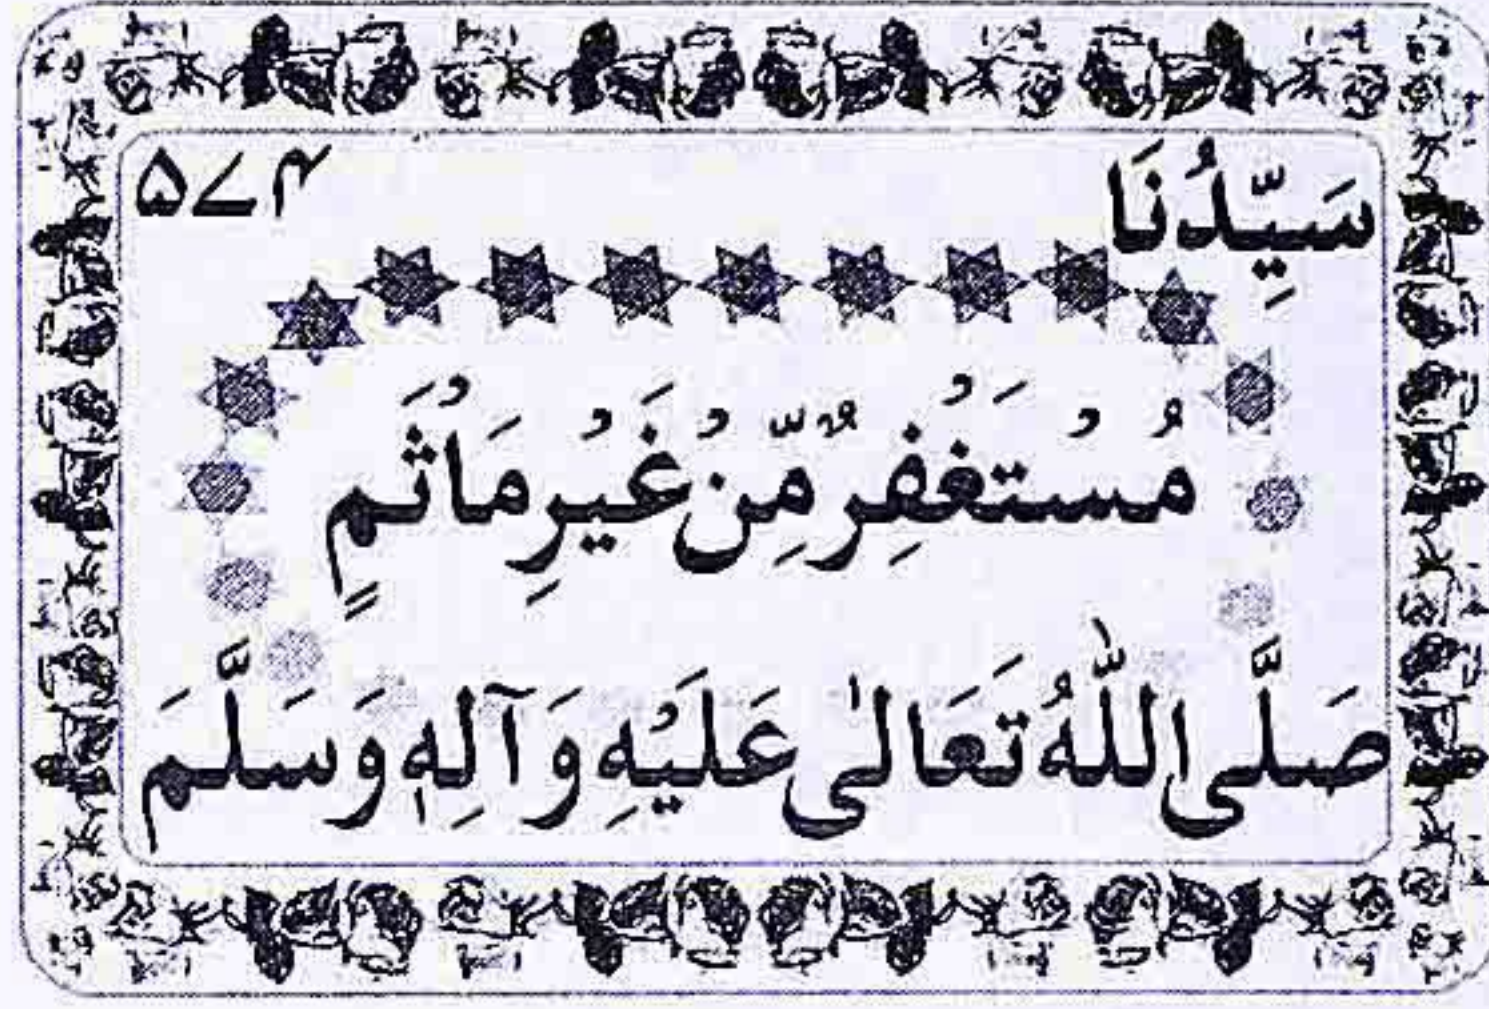 سَيِّدُنَا ۵۷۴
مُسْتَغْفِرٌ مِّنْ غَيْرِ مَأْثَمٍ
صَلَّی اللّٰهُ تَعَالٰی عَلَيْهِ وَآلِهٖ وَسَلَّمَ